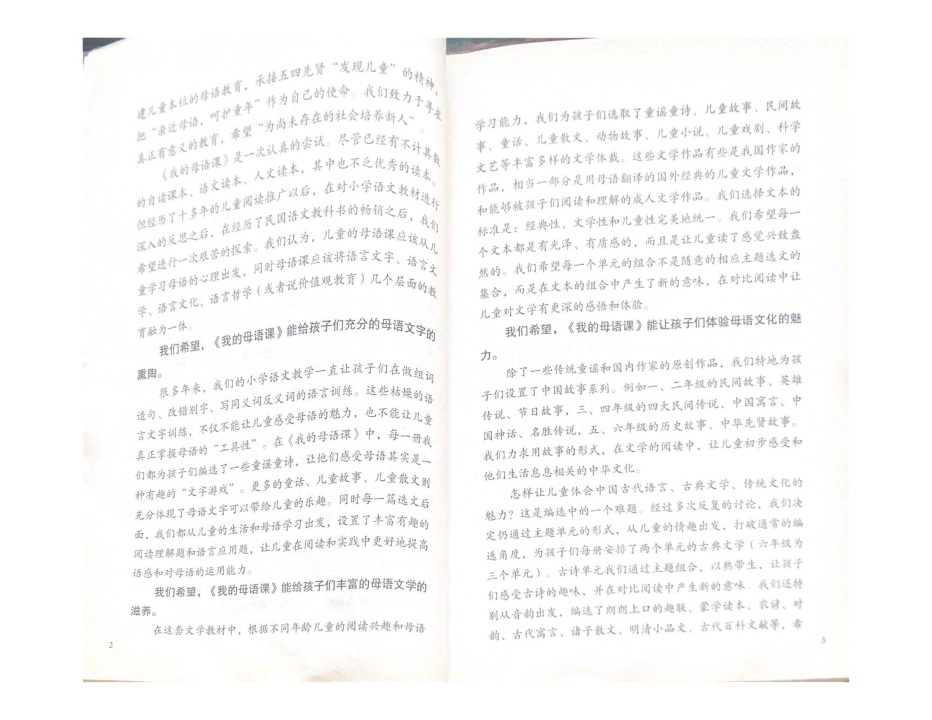 建儿童本位的母语教育，承接五四先贤“发现儿童”的精神，
把“亲近母语，呵护童年”作为自己的使命。我们致力于寻找
真正有意义的教育，希望“为尚未存在的社会培养新人”。
《我的母语课》是一次认真的尝试。尽管已经有不计其数
的自读课本、语文读本、人文读本，其中也不乏优秀的读本。
但经历了十多年的儿童阅读推广以后，在对小学语文教材进行
深入的反思之后，在经历了民国语文教科书的畅销之后，我们
希望进行一次艰苦的探索。我们认为，儿童的母语课应该从儿
童学习母语的心理出发，同时母语课应该将语言文字、语言文
学、语言文化、语言哲学（或者说价值观教育）几个层面的教
育融为一体。
我们希望，《我的母语课》能给孩子们充分的母语文字的
熏陶。
很多年来，我们的小学语文教学一直让孩子们在做组词
造句、改错别字、写同义词反义词的语言训练。这些枯燥的语
言文字训练，不仅不能让儿童感受母语的魅力，也不能让儿童
真正掌握母语的“工具性”。在《我的母语课》中，每一册我
们都为孩子们编选了一些童谣童诗，让他们感受母语其实是一
种有趣的“文字游戏”。更多的童话、儿童故事、儿童散文则
充分体现了母语文字可以带给儿童的乐趣。同时每一篇选文后
面，我们都从儿童的生活和母语学习出发，设置了丰富有趣的
阅读理解题和语言应用题，让儿童在阅读和实践中更好地提高
语感和对母语的运用能力。
我们希望，《我的母语课》能给孩子们丰富的母语文学的
滋养。
在这套文学教材中，根据不同年龄儿童的阅读兴趣和母语
2
学习能力，我们为孩子们选取了童谣童诗、儿童故事、民间故
事、童话、儿童散文、动物故事、儿童小说、儿童戏剧、科学
文艺等丰富多样的文学体裁。这些文学作品有些是我国作家的
作品，相当一部分是用母语翻译的国外经典的儿童文学作品，
和能够被孩子们阅读和理解的成人文学作品。我们选择文本的
标准是：经典性、文学性和儿童性完美地统一。我们希望每一
个文本都是有光泽、有质感的，而且是让儿童读了感觉兴致盎
然的。我们希望每一个单元的组合不是随意的相应主题选文的
集合，而是在文本的组合中产生了新的意味，在对比阅读中让
儿童对文学有更深的感悟和体验。
我们希望，《我的母语课》能让孩子们体验母语文化的魅
力。
除了一些传统童谣和国内作家的原创作品，我们特地为孩
子们设置了中国故事系列。例如一、二年级的民间故事、英雄
传说、节日故事，三、四年级的四大民间传说、中国寓言、中
国神话、名胜传说，五、六年级的历史故事、中华先贤故事。
我们力求用故事的形式，在文学的阅读中，让儿童初步感受和
他们生活息息相关的中华文化。
怎样让儿童体会中国古代语言、古典文学、传统文化的
魅力？这是编选中的一个难题。经过多次反复的讨论，我们决
定仍通过主题单元的形式，从儿童的情趣出发，打破通常的编
选角度，为孩子们每册安排了两个单元的古典文学（六年级为
三个单元）。古诗单元我们通过主题组合，以熟带生，让孩子
们感受古诗的趣味，并在对比阅读中产生新的意味。我们还特
别从音韵出发，编选了朗朗上口的趣联、蒙学读本、农谚、对
韵、古代寓言、诸子散文、明清小品文、古代百科文献等，希
3